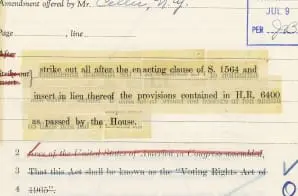 Amendment offered by Mr. Celler, N.Y.
JUL 9
PER
Page , line
After
strike out all after the enacting clause of S. 1564 and
insert in lieu thereof the provisions contained in H.R. 6400
as passed by the House.
2 tives of the United States of America in Congress assembled,
3 That this Act shall be known as the "Voting Rights Act of
4 1965".